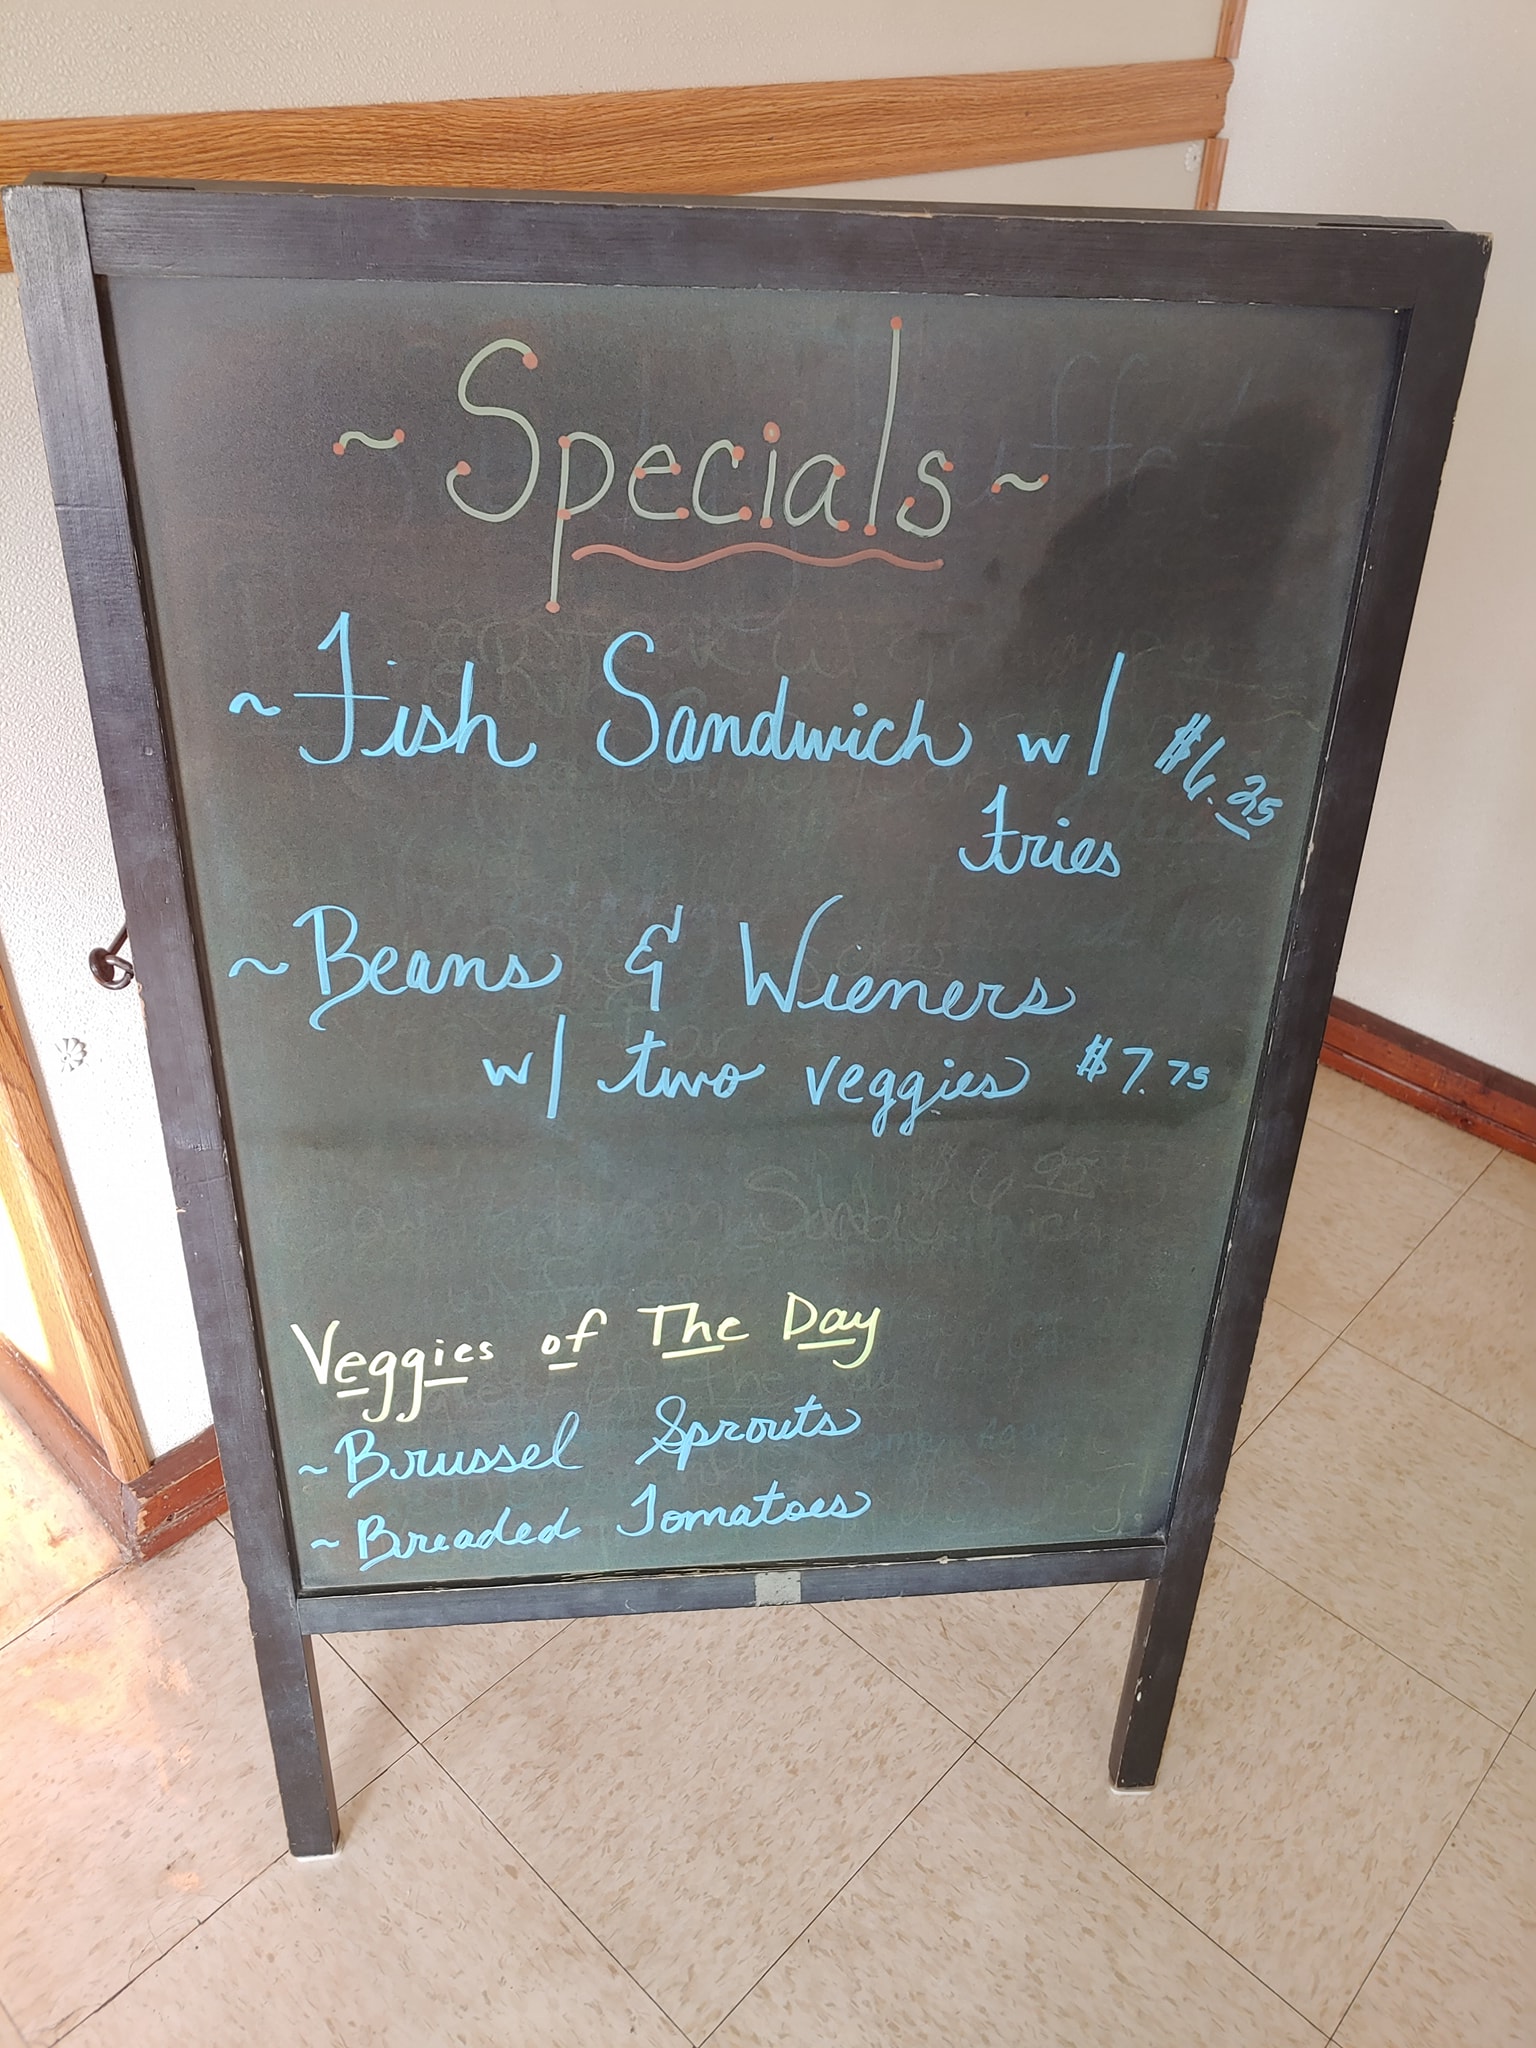 ~ Specials ~
~ Fish Sandwich w/ $6.25
Fries
~ Beans & Wieners
w/ two veggies $7.75
$6.95
Veggies of The Day
~ Brussel Sprouts
~ Breaded Tomatoes